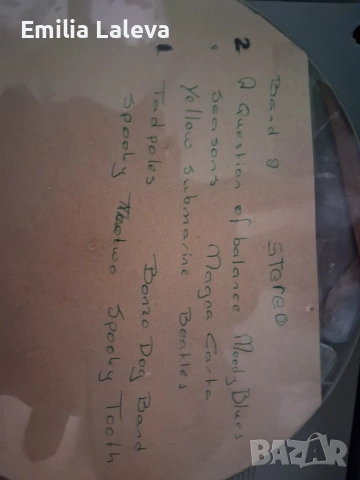 Emilia Laleva
Band 8 STEREO
2 A question of balance Moody Blues
" Seasons Magna Carta
Yellow submarine Beatles
1 Tadpoles Bonzo Dog Band
Spooky two Spooky Tooth
BAZAR